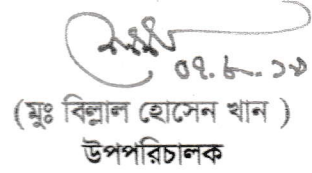 ০৭.৮.১৩
(মুঃ বিল্লাল হোসেন খান )
উপপরিচালক